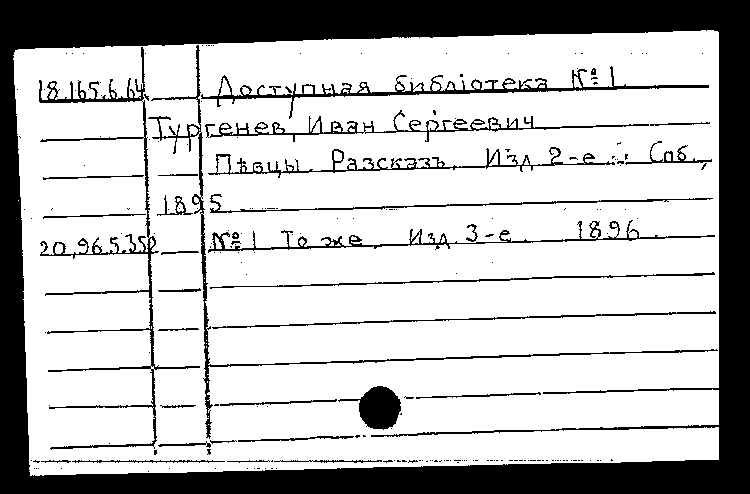 18.165.6.64 Доступная библіотека № 1
Тургенев, Иван Сергеевич
Пѣвцы. Разсказъ. Изд 2-е Спб.,
1895
20.96.5.352 № 1 То же. Изд. 3-е. 1896.